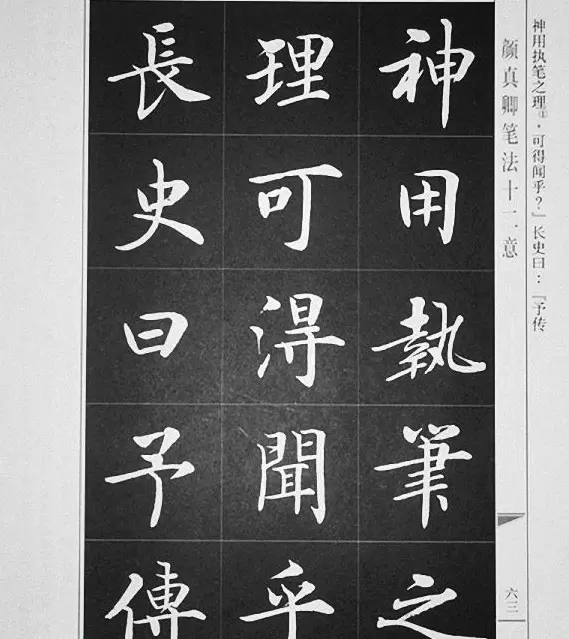 神用执笔之理①，可得闻乎？」长史曰：「予传
颜真卿笔法十二意
六三
神用執筆之
理可得聞乎
長史曰予傳